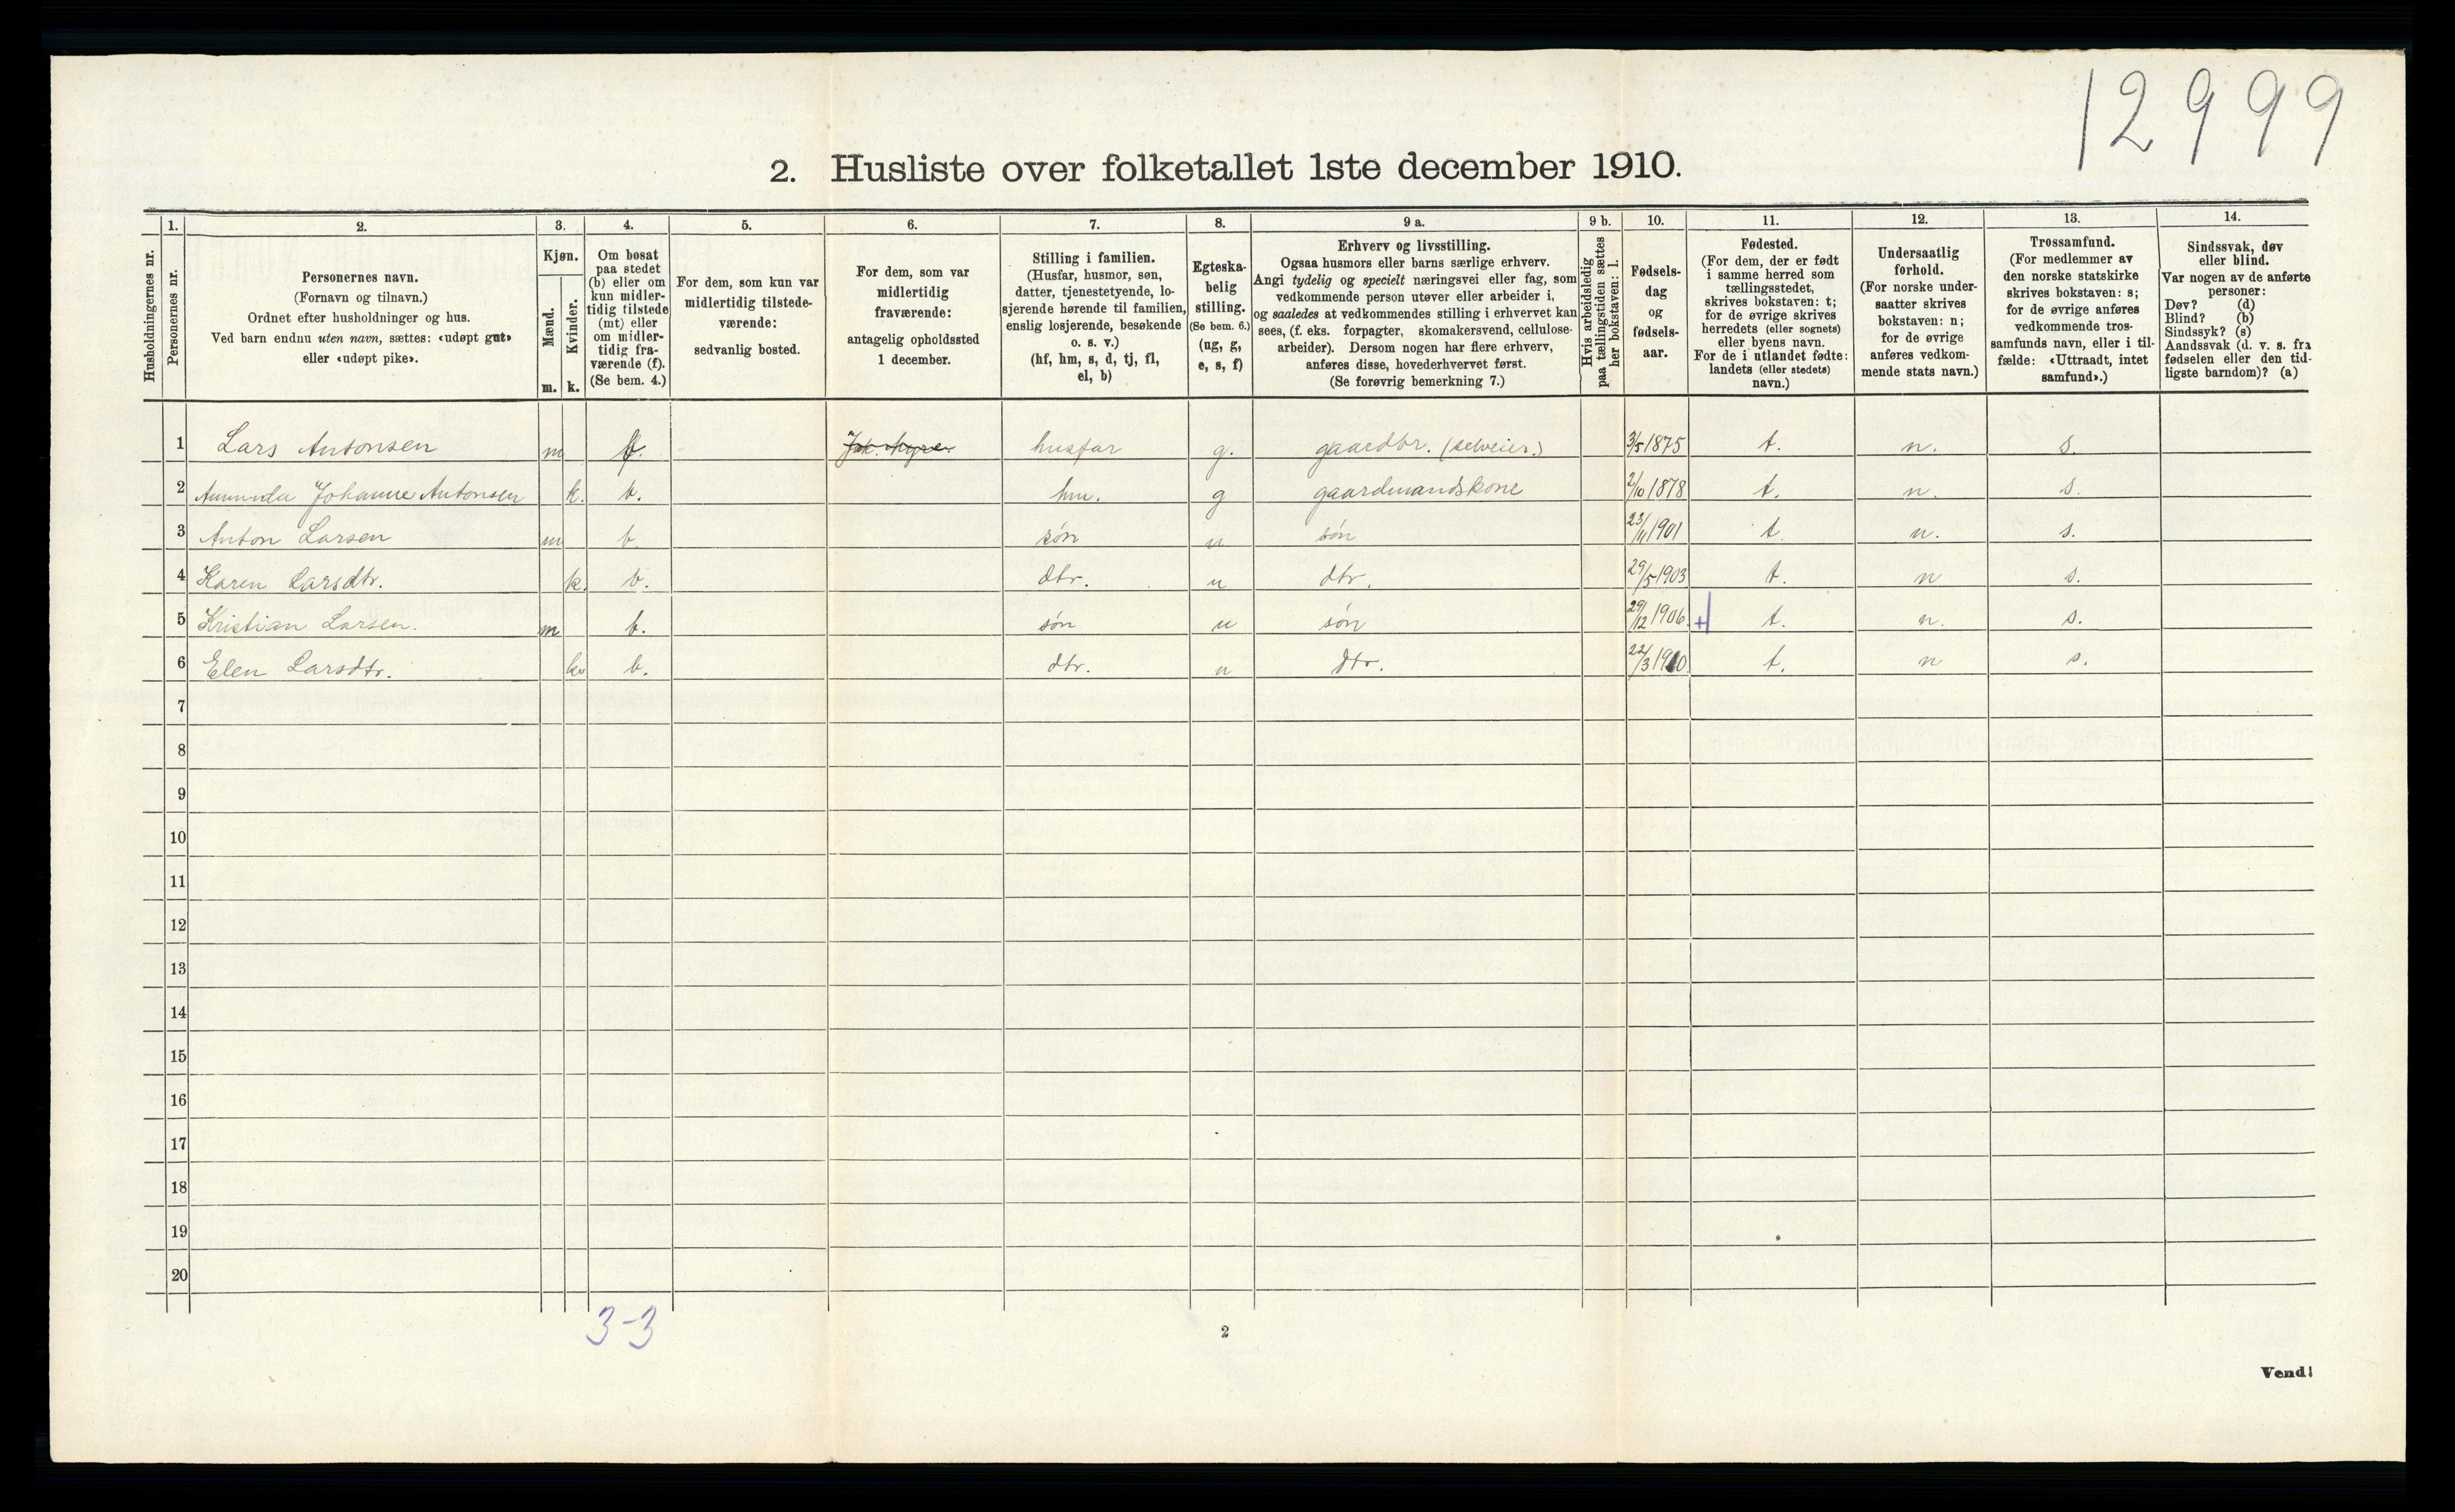 12999
2. Husliste over folketallet 1ste december 1910.
Husholdningernes nr.
1.
Personernes nr.
2.
Personernes navn.
(Fornavn og tilnavn.)
Ordnet efter husholdninger og hus.
Ved barn endnu uten navn, sættes: «udøpt gut»
eller «udøpt pike».
3.
Kjøn.
Mænd.
m.
Kvinder.
k.
4.
Om bosat
paa stedet
(b) eller om
kun midler-
tidig tilstede
(mt) eller
om midler-
tidig fra-
værende (f).
(Se bem. 4.)
5.
For dem, som kun var
midlertidig tilstede-
værende:
sedvanlig bosted.
6.
For dem, som var
midlertidig
fraværende:
antagelig opholdssted
1 december.
7.
Stilling i familien.
(Husfar, husmor, søn,
datter, tjenestetyende, lo-
sjerende hørende til familien,
enslig losjerende, besøkende
o. s. v.)
(hf, hm, s, d, tj, fl,
el, b)
8.
Egteska-
belig
stilling.
(Se bem. 6.)
(ug, g,
e, s, f)
9 a.
Erhverv og livsstilling.
Ogsaa husmors eller barns særlige erhverv.
Angi tydelig og specielt næringsvei eller fag, som
vedkommende person utøver eller arbeider i,
og saaledes at vedkommendes stilling i erhvervet kan
sees, (f. eks. forpagter, skomakersvend, cellulose-
arbeider). Dersom nogen har flere erhverv,
anføres disse, hovederhvervet først.
(Se forøvrig bemerkning 7.)
9 b.
Hvis arbeidsledig
paa tællingstiden sættes
her bokstaven: l.
10.
Fødsels-
dag
og
fødsels-
aar.
11.
Fødested.
(For dem, der er født
i samme herred som
tællingsstedet,
skrives bokstaven: t;
for de øvrige skrives
herredets (eller sognets)
eller byens navn.
For de i utlandet fødte:
landets (eller stedets)
navn.)
12.
Undersaatlig
forhold.
(For norske under-
saatter skrives
bokstaven: n;
for de øvrige
anføres vedkom-
mende stats navn.)
13.
Trossamfund.
(For medlemmer av
den norske statskirke
skrives bokstaven: s;
for de øvrige anføres
vedkommende tros-
samfunds navn, eller i til-
fælde: «Uttraadt, intet
samfund».)
14.
Sindssvak, døv
eller blind.
Var nogen av de anførte
personer:
Døv? (d)
Blind? (b)
Sindssyk? (s)
Aandssvak (d. v. s. fra
fødselen eller den tid-
ligste barndom)? (a)
1 Lars Antonsen m husfar g. gaardbr. (selveier.) 3/5 1875 t. n. s.
2 Amunda Johanne Antonsen k. b. hm. g gaardmandskone 2/10 1878 t. n. s.
3 Anton Larsen m b. søn u søn 23/11 1901 t. n. s.
4 Karen Larsdtr. k. b. dtr. u dtr. 29/5 1903 t. n s.
5 Kristian Larsen. m b. søn u søn 29/12 1906 + t. n. s.
6 Elen Larsdtr. kv b. dtr. u dtr. 22/3 1910 t. n s.
7
8
9
10
11
12
13
14
15
16
17
18
19
20
3-3
2
Vend!